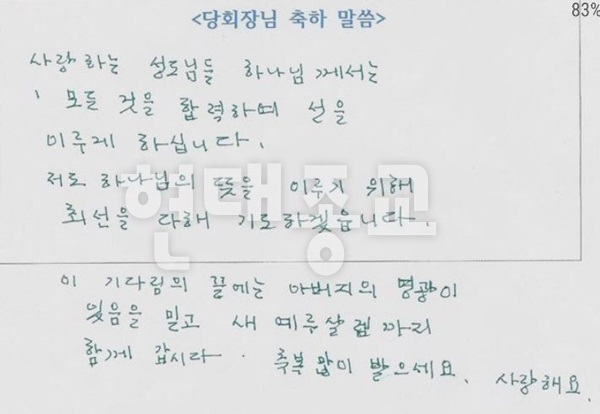 <당회장님 축하 말씀>
83%
사랑하는 성도님들 하나님께서는
모든 것을 합력하며 선을
이루게 하십니다.
저도 하나님의 뜻을 이루기 위해
최선을 다해 기도하겠습니다.
현대종교
이 기다림의 끝에는 아버지의 영광이
있음을 믿고 새 예루살렘까지
함께 갑시다. 축복 많이 받으세요. 사랑해요.